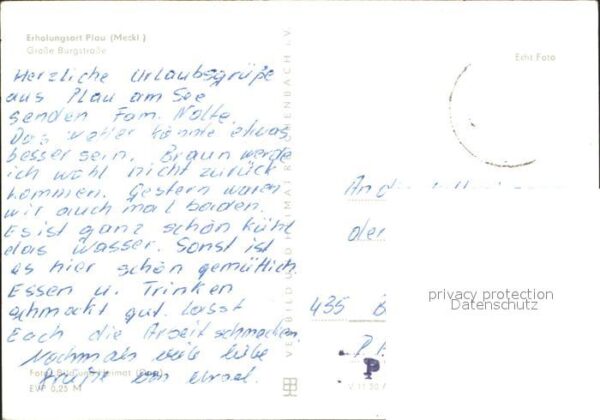 Erholungsort Plau (Meckl.)
Große Burgstraße
Herzliche Urlaubsgrüße
aus Plau am See
senden Fam. Nolte.
Das Wetter könnte etwas
besser sein. Braun werde
ich wohl nicht zurück
kommen. Gestern waren
wir auch mal baden.
Es ist ganz schön kühl
das Wasser. Sonst ist
es hier schön gemütlich.
Essen u. Trinken
schmeckt gut. Lasst
Euch die Arbeit schmecken.
Nochmals viele liebe
Grüße von
Foto: Bild und Heimat
EVP 0,25 M
VERLAG BILD UND HEIMAT REICHENBACH i. V.
Echt Foto
An die
der
435 B
P
V 11 50
privacy protection
Datenschutz